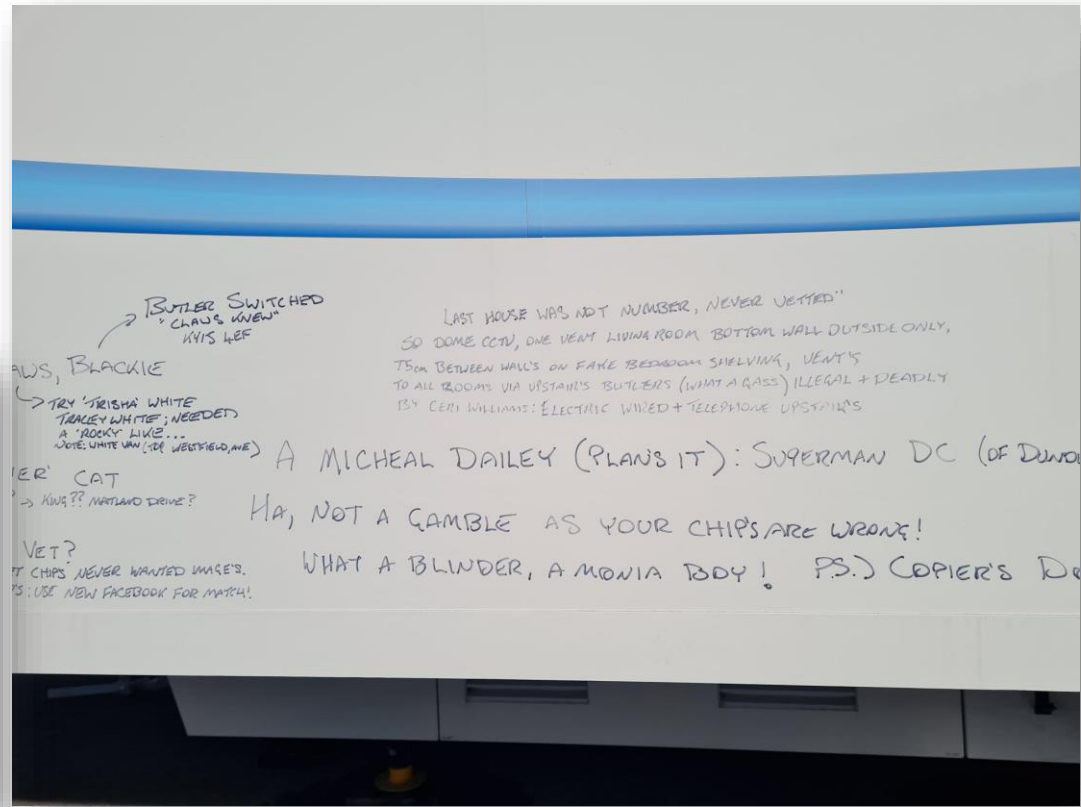 BUTLER SWITCHED
"CLAWS KNEW"
AWS, BLACKIE
TRY 'TRISHA' WHITE
TRACEY WHITE; NEEDED
A 'ROCKY LIKE...
NOTE: WHITE VAN (TOP WESTFIELD, AVE)
ER' CAT
KING?? MAITLAND DRIVE?
VET?
T CHIPS NEVER WANTED IMAGE'S.
'S: USE NEW FACEBOOK FOR MATCH!
LAST HOUSE WAS NOT NUMBER, NEVER VETTED"
SO DOME CCTV, ONE VENT LIVING ROOM BOTTOM WALL OUTSIDE ONLY,
75cm BETWEEN WALL'S ON FAKE BEDROOM SHELVING, VENT'S
TO ALL ROOMS VIA UPSTAIR'S BUTLERS (WHAT A GASS) ILLEGAL + DEADLY
BY CERI WILLIAMS: ELECTRIC WIRED + TELEPHONE UPSTAIR'S
A MICHEAL DAILEY (PLANS IT): SUPERMAN DC (OF DUND
HA, NOT A GAMBLE AS YOUR CHIP'S ARE WRONG!
WHAT A BLINDER, A MONIA BOY! P.S.) COPIER'S